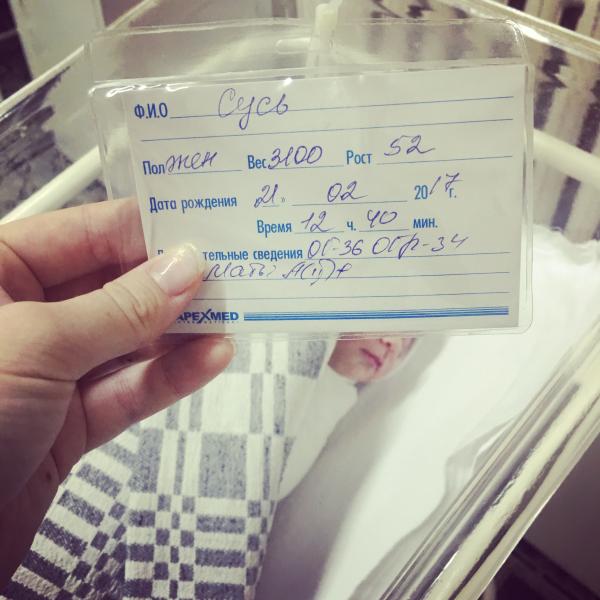 Ф.И.О Сусь
Пол жен Вес 3100 Рост 52
Дата рождения 21 » 02 2017 г.
Время 12 ч. 40 мин.
тельные сведения ОГ-36 ОГр-34
Мать: A(II)+
APEXMED